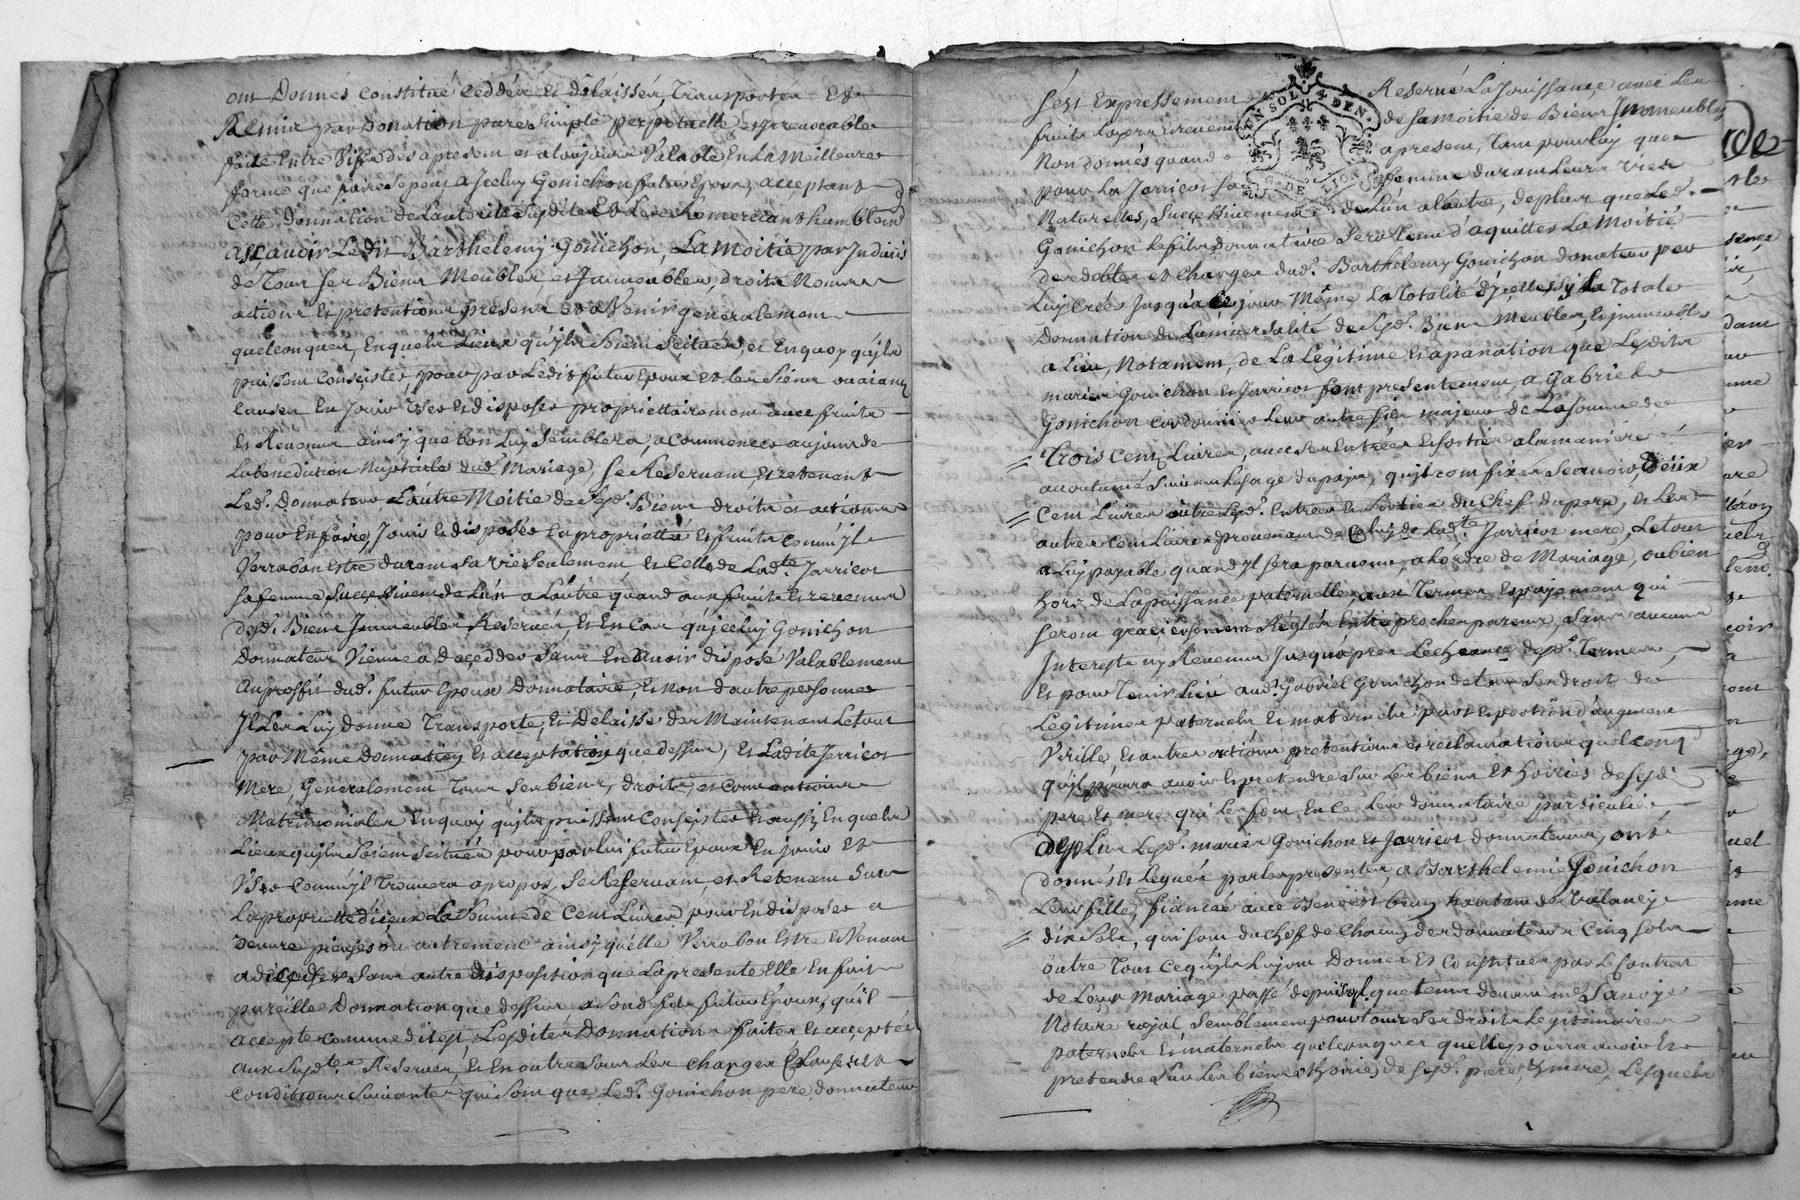 ont Donnés constitué Ceddéz et délaissér, Transportér Et
Remir par Donation pure simple perpétuelle et jrrevocable
faite Entre Vifs dés apresent et atoujours Valable En La Meilleure
forme que faire se peut A Jceluy Gonichon futur Epoux, acceptant
Cette Donnation de Lautorité susdite Et Les Remerciant humblemt
asçavoir Ledit Barthelemy Gonichon, La Moitié par Indivis
de Tous ses Biens Meubles et Jmmeubles, droits Noms
actions Et pretentions presens et a Venir generalement
quelconques, En quels Lieux qu'jls soient scitués et En quoy qu'jls
puissent Conscister pour par Ledit futur Epoux et les siens ou aians
causes En Jouir User Et disposer proprietairement avec fruits
Et Revenus ainsy que bon Luy semblera, a Commencer au jour de
La benediction Nuptiale dud. Mariage, se Reservant, Et retenant
Led. Donnateur L'autre Moitié de sesd. Biens droits et actions
pour En faire, Jouir Et disposer En proprietté Et fruits Comm'jl
Verra bon Estre durant sa vie seulement Et Celle de Ladte. Jarricot
sa femme successivement de L'un a L'autre quand aux fruits Et revenus
desd. Biens Jmmeubles Reservés, Et En Cas qu'jceluy Gonichon
Donnateur Vienne a Deçedder sans En avoir disposé Valablement
au proffit dud. futur Epoux Donnataire, Et non d'autre personne
Jl Les Luy donne Transporte, Et Délaisse des Maintenant Le tout
par Même Donnation Et acceptation que dessus, Et Ladite Jarricot
Mere, Generalement Tous ses biens, droits, et conventions
Matrimoniales En quoy qu'jls puissent Consçister Et aussy En quels
Lieux qu'jls soient scitués pour par luy futur Epoux En jouir Et
User Comm'jl Trouvera apropos, se Reservant, et Retenant Sur
La proprietté d'iceux La somme de Cent Livres pour En disposer a
oeuvre pieuses ou autrement ainsy qu'elle Verra bon Estre Et Venant
a décedder sans autre disposition que La presente Elle En fait
pareille Donnation que dessus a sond. fils futur Epoux, qu'il
accepte comme dit est Lesdites Donnations faites Et acceptées
aux susdtes. Reserves, Et En outre sous Les charges Clauses Et
Conditions suivantes qui sont que Led. Gonichon pere, donnateur
s'est Expressement Reservé La Jouissance avec Les
fruits de sa moitié de Biens Jmmeubles
Non donnés quand a present, Tant pour luy que
pour La Jarricot sa femme durant Leurs vies
Naturelles, successivement de L'un a L'autre, de plus que Led.
Gonichon Le fils donnataire sera Tenu d'aquitter La Moitié
des debtes et Charges dud. Barthelemy Gonichon donnateur par
Luy Créés Jusqua Ce jour Même La totalité d'jcelles sy La Totale
Donnation de L'universalité de sesd. Biens Meubles, Et jmmeubles
a Lieu, Notament, de La Légitime Et apanation que Lesdits
mariés Gonichon et Jarricot font presentement, a Gabriel
Gonichon cordonnier Leur autre fils majeur de La somme de
Trois Cent Livres, avec ses Entrées Et sortie a La maniére
accoutumé suivant L'usage du païs, qu'jls ont fixés sçavoir, Deux
Cent Livres outre Lesd. Entrées Et sorties du Chef du pere, et Les
autres cent Livres provenant de Celuy de Ladte. Jarricot mere, Le tout
a Luy payable quand Jl sera parvenu, a L'ordre de Mariage, ou bien
hors de La puissance paternelle, aux Termes Et payement qui
seront gracieusement Réglés Entre proches parens, sans aucuns
Jnterests ny Revenus Jusqu'apres L'echeance desd. Termes,
Et pour Tenir Lieu aud. Gabriel Gonichon de tous ses droits de
Legitimes paternelle Et maternelle part Et portion d'augment
Virille, Et autres actions pretentions et reclamations quelconq.
qu'jl pourra avoir Et pretendre sur Les biens Et Hoiries de sesd.
pere Et mere qui Le font En ce Leur donnataire particulier,
De plus Lesd. mariés Gonichon Et Jarricot donnateurs, ont
donnés Et Legués par les presentes, a Barthelemie Gonichon
Leur fille, fiancée avec Benoist brun habitant de Valancy
dix sols, qui sont du chef de Chacun des donnateurs Cinq sols
outre Tout Ce qu'jls Luy ont Donnés Et Constitués par Le Contrat
de Leur Mariage passé depuis quelque tems devant me. Savoye
Notaire royal semblement pour tous ses droits Legitimaires
paternels Et maternels quelconques qu'elle pourra avoir Et
pretendre sur Les biens Et Hoiries de sesd. pere, Et mere, Lesquels
EN SOL 4 DEN
G. DE LION